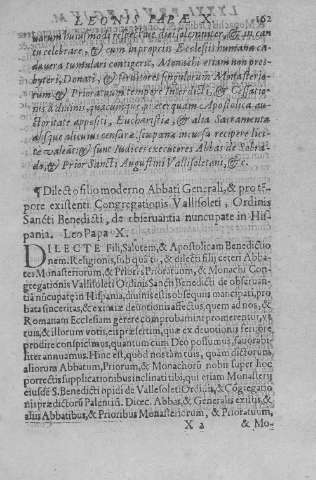 LEONIS PAPÆ X. 162
uarum huiusmodi respectiue diei solemniter, & in can
tu celebrare, & cum in proprijs Ecclesijs humana ca-
dauera tumulari contigerit, Monachi etiam non pres-
byteri, Donati, & seruitores singulorum Monasterio-
rum & Prioratuum tempore Interdicti, & Cessatio-
nis à diuinis, quacunque quæterquam Apostolica au-
ctoritate appositi, Eucharistiæ, & alia Sacramenta
absque alicuius censuræ, seu pœnæ incursu recipere lici-
tè valeāt; & sunt Iudices executores Abbas de Sabra-
da, & Prior Sancti Augustini Vallisoletani, &c.
¶ Dilecto filio moderno Abbati Generali, & pro tē-
pore existenti Congregationis Vallisoleti, Ordinis
Sancti Benedicti, de obseruantia nuncupatæ in His-
pania. Leo Papa X.
DILECTE Fili, Salutem, & Apostolicam Benedictio
nem. Religionis, sub qua tu, & dilecti filij cæteri Abba-
tes Monasteriorum, & Priores Prioratuum, & Monachi Con
gregationis Vallisoleti Ordinis Sancti Benedicti de obseruan-
tia nūcupatæ in Hispania, diuinis estis obsequijs mancipati, pro
bata sinceritas, & eximiæ deuotionis affectus, quem ad nos, &
Romanam Ecclesiam gerere comprobamini promerentur, vt
tuis, & illorum votis, eis præsertim, quæ ex deuotionis feruore
prodire conspicimus, quantum cum Deo possumus, fauorabi-
liter annuamus. Hinc est, quòd nos tàm tuis, quàm dictorum
aliorum Abbatum, Priorum, & Monachorū nobis super hoc
porrectis supplicationibus inclinati tibi, qui etiam Monasterij
eiusdē S. Benedicti oppidi de Vallesoleti Ordinis, & Cōgregatio
nis prædictorū Palentin. Diœc. Abbas, & Generalis existis, &
alijs Abbatibus, & Prioribus Monasteriorum, & Prioratuum,
X 2 & Mo-